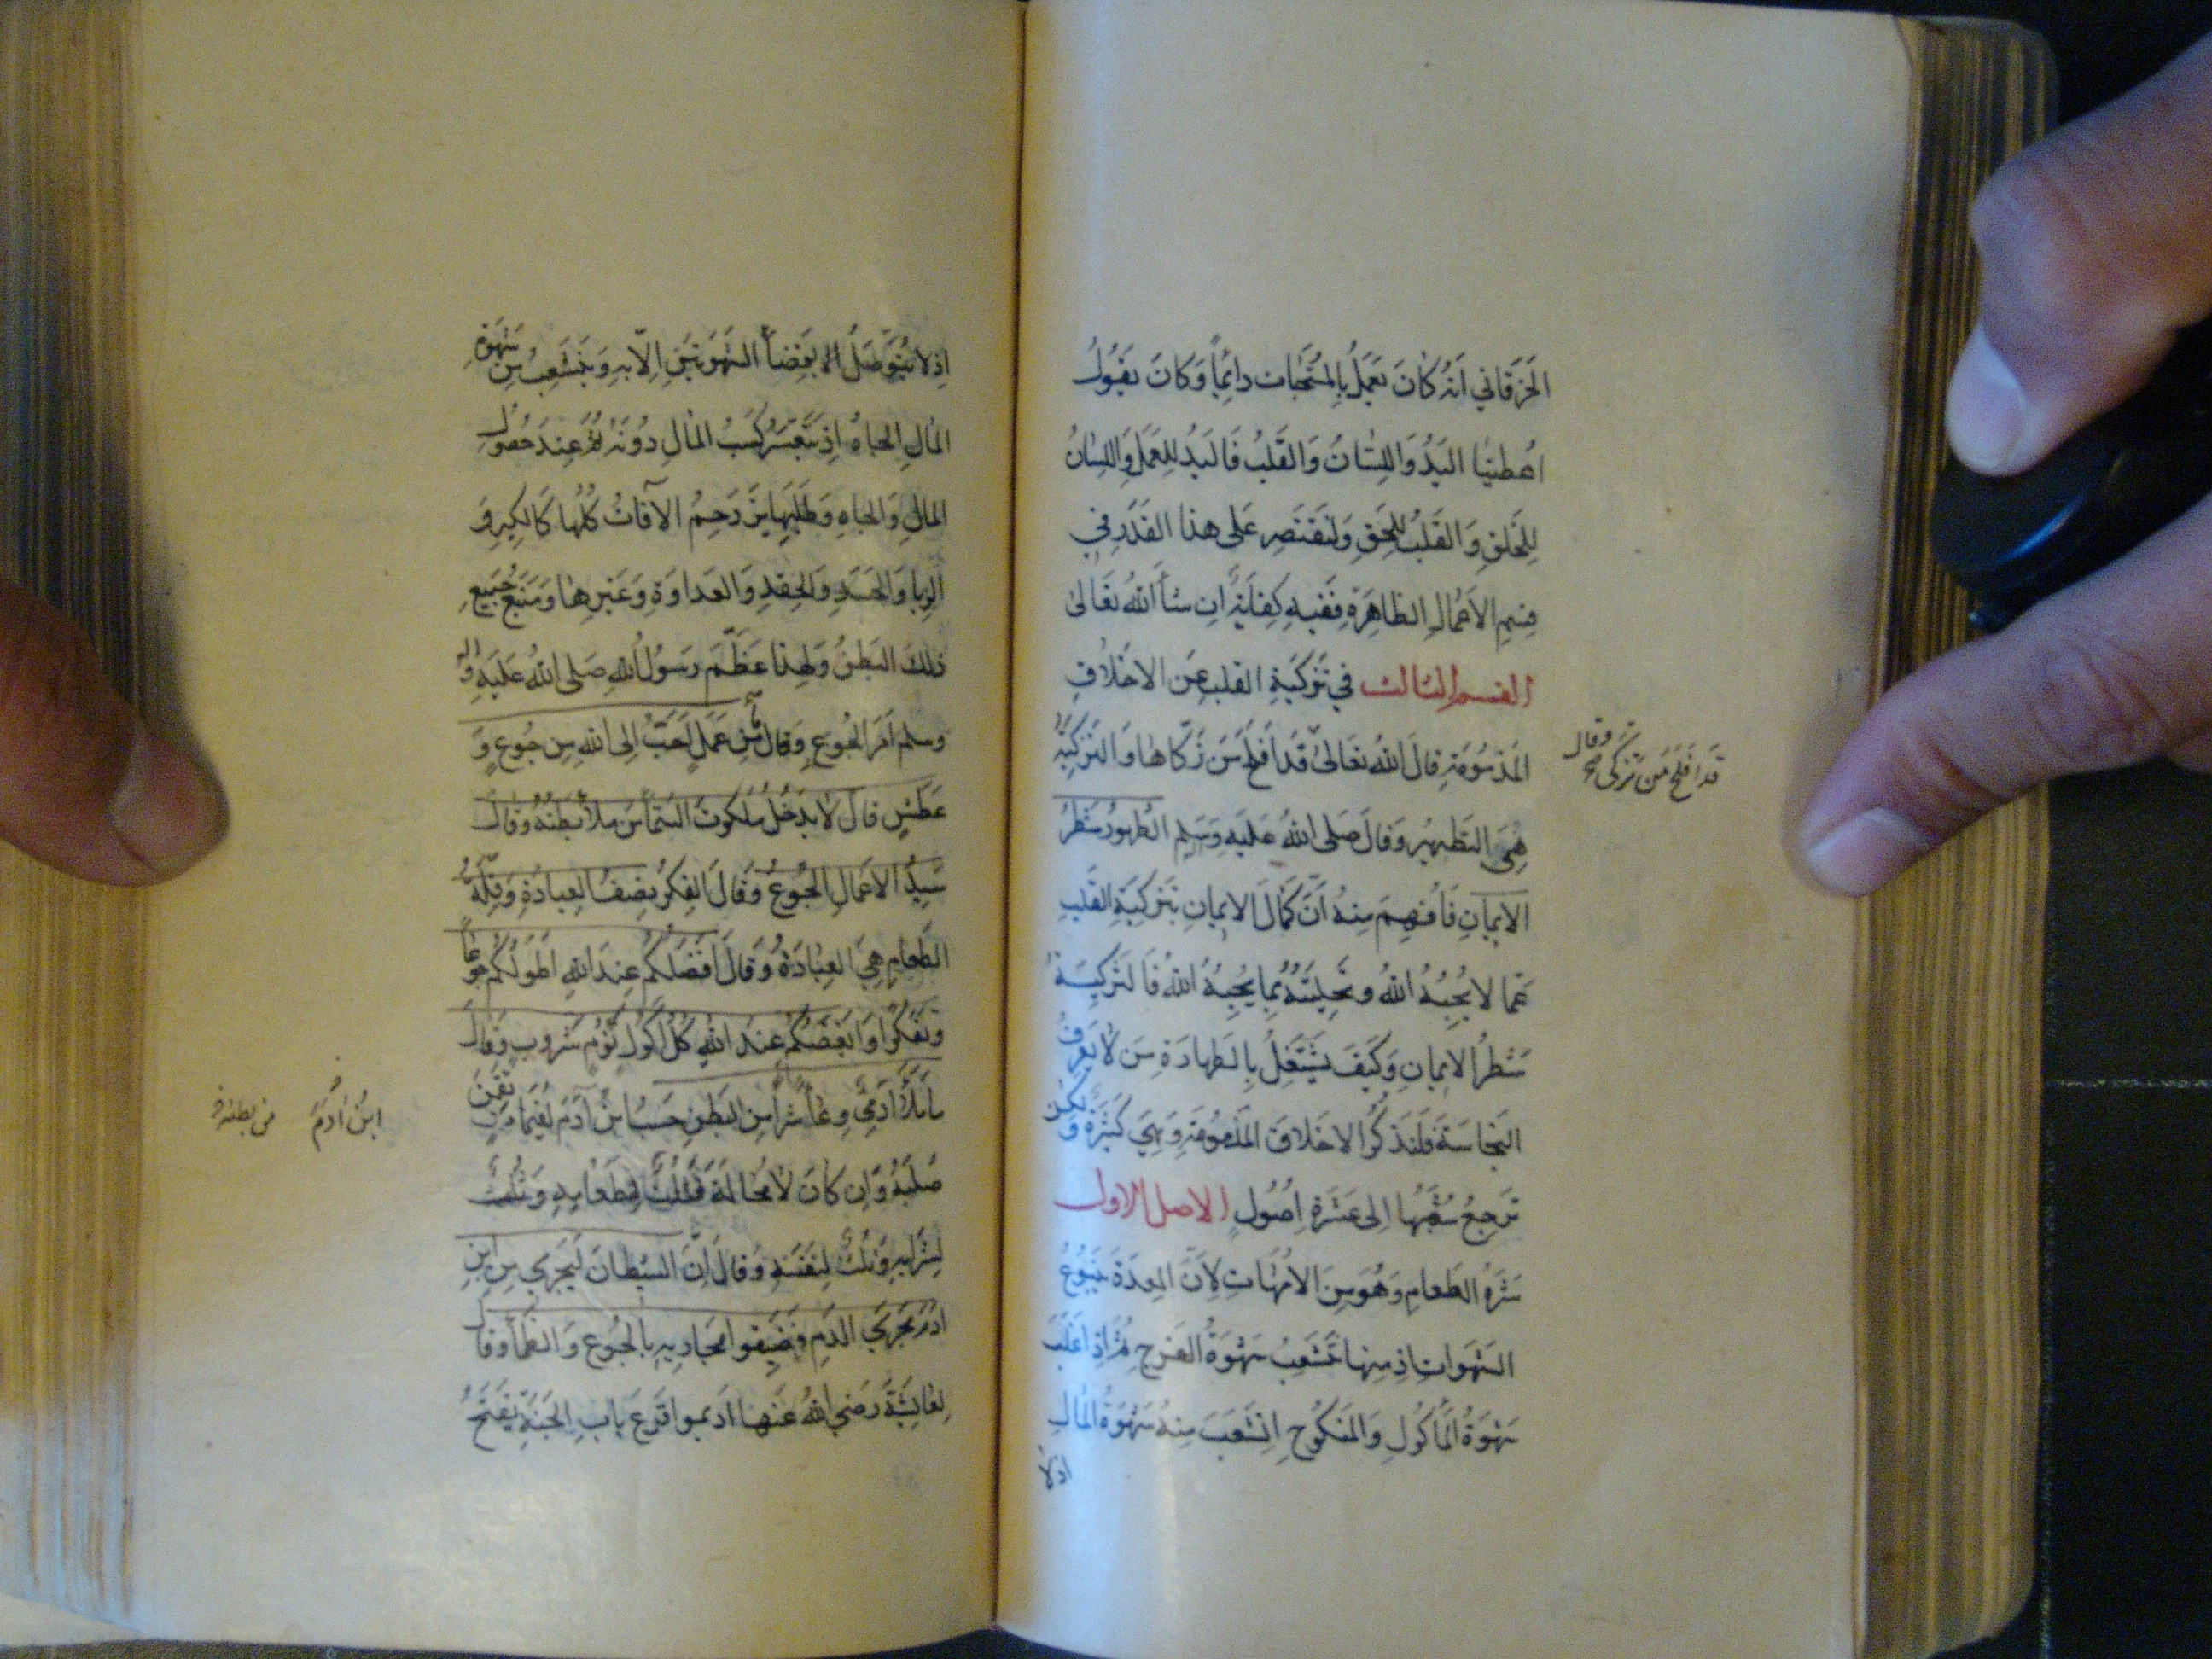 الخرقاني انه كان يعمل بالمستحبات دائما وكان يقول
اعطينا اليد واللسان والقلب فاليد للعمل واللسان
للخلق والقلب للحق ولنقتصر على هذا القدر في
قسم الاعمال الظاهرة ففيه كفاية ان شاء الله تعالى
القسم الثالث في تزكية القلب عن الاخلاق
المذمومة قال الله تعالى قد افلح من زكاها والتزكية
قد افلح من تزكى وقال صح
هي التطهير وقال صلى الله عليه وسلم الطهور شطر
الايمان فافهم منه ان كمال الايمان بتزكية القلب
عما لا يحبه الله وتحليته بما يحبه الله فالتزكية
شطر الايمان وكيف يشتغل بالطهارة من لا يعرف
النجاسة فلنذكر الاخلاق المذمومة وهي كثيرة ولكن
ترجع شعبها الى عشرة اصول الاصل الاول
شره الطعام وهو من الامهات لان المعدة ينبوع
الشهوات اذ منها تتشعب شهوة الفرج ثم اذا غلبت
شهوة المأكول والمنكوح انشعب منه شهوة المال
اذ لا
اذ لا يتوصل الى قضاء الشهوتين الا به ويتشعب من شهوة
المال الجاه اذ يتعسر كسب المال دونه ثم عند حصول
المال والجاه وطلبها يزدحم الآفات كلها كالكبر و
الريا والحسد والحقد والعداوة وغيرها ومنبع جميع
ذلك البطن ولهذا عظم رسول الله صلى الله عليه واله
وسلم امر الجوع وقال ما من عمل احب الى الله من جوع و
عطش وقال لا يدخل ملكوت السماء من ملأ بطنه وقال
سيد الاعمال الجوع وقال الفكر نصف العبادة وقلة
الطعام هي العبادة وقال افضلكم عند الله اطولكم جوعا
وتفكرا وابغضكم عند الله كل اكول نؤم شروب وقال
ما ملأ آدمي وعاء شرا من البطن حسب ابن آدم لقيمات يقمن
ابن آدم من بطنه
صلبه وان كان لا محالة فثلث لطعامه وثلث
لشرابه وثلث لنفسه وقال ان الشيطان ليجري من ابن
ادم مجرى الدم فضيقوا مجاريه بالجوع والظمأ وقال
لعايشة رضي الله عنها اديموا قرع باب الجنة يفتح